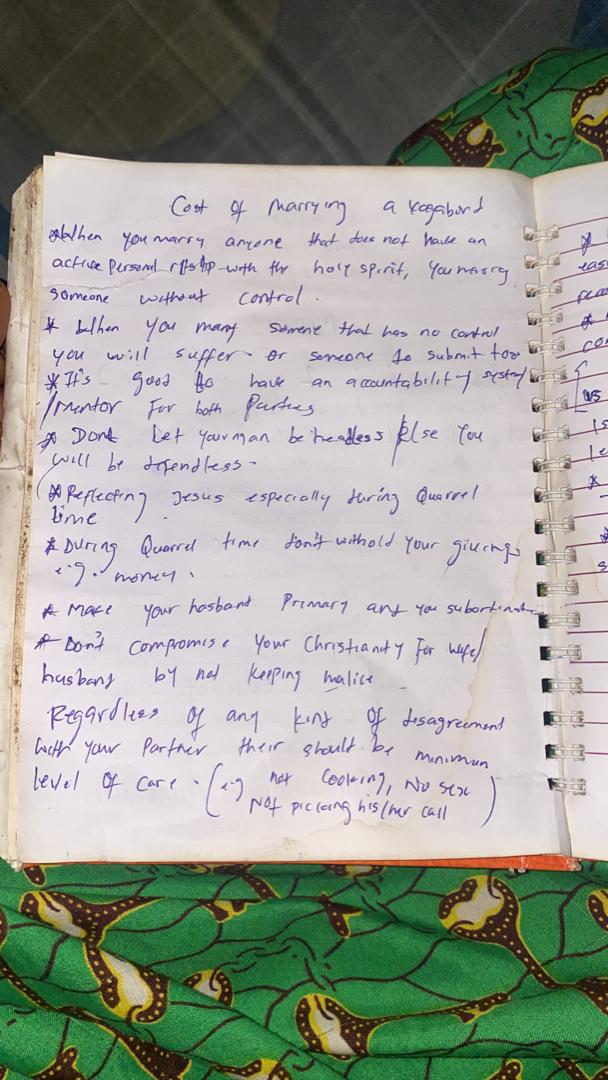 Cost of Marrying a Vagabond
*When you marry anyone that does not have an
active personal with the holy spirit, you marry
someone without control.
* When you marry someone that has no control
you will suffer. or someone to submit too
*It's good to have an accountability system
/Mentor for both Parties
* Dont Let your man be headless /else you
will be defendless.
*Reflecting Jesus especially during Quarrel
time
* During Quarrel time don't withold your givings
e.g. money.
* Make your husband Primary and you
* Don't compromise your Christianity for wife/
husband by not keeping malice
Regardless of any kind of disagreement
with your Partner their should be minimun
level of care. (e.g not cooking, No sex
Not picking his/her call)
*
eas
pe
*
con
us
Is
le
*
s